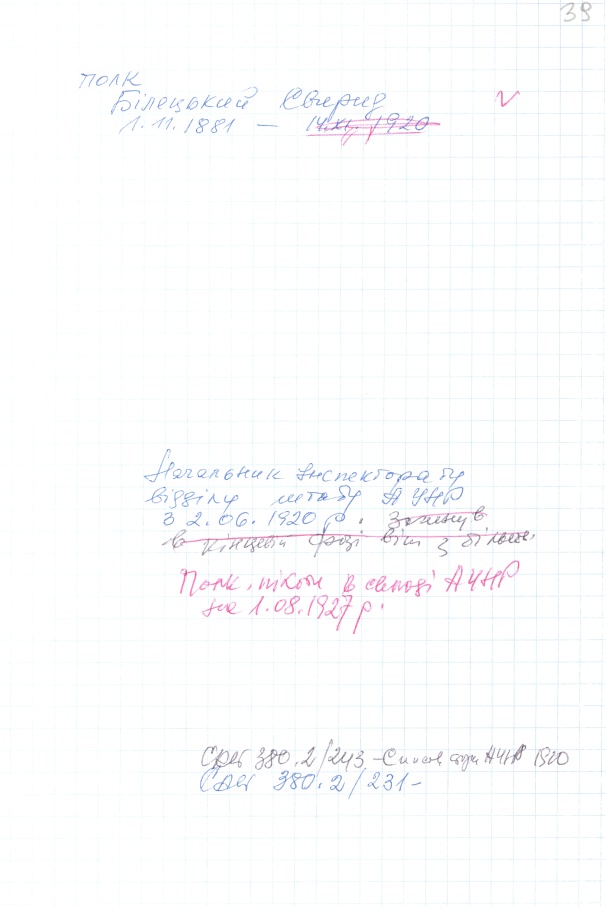 39
полк
Білецький Свирид
1.11.1881 — 14.XI. 1920
Начальник Інспекторату
відділу штабу АУНР
з 2.06.1920 р. Загинув
в кінцевій фазі війн з більш.
Полк. піхоти в складі АУНР
на 1.08.1927 р.
380.2/243 – Список стрш АУНР 1920
380.2/231 –